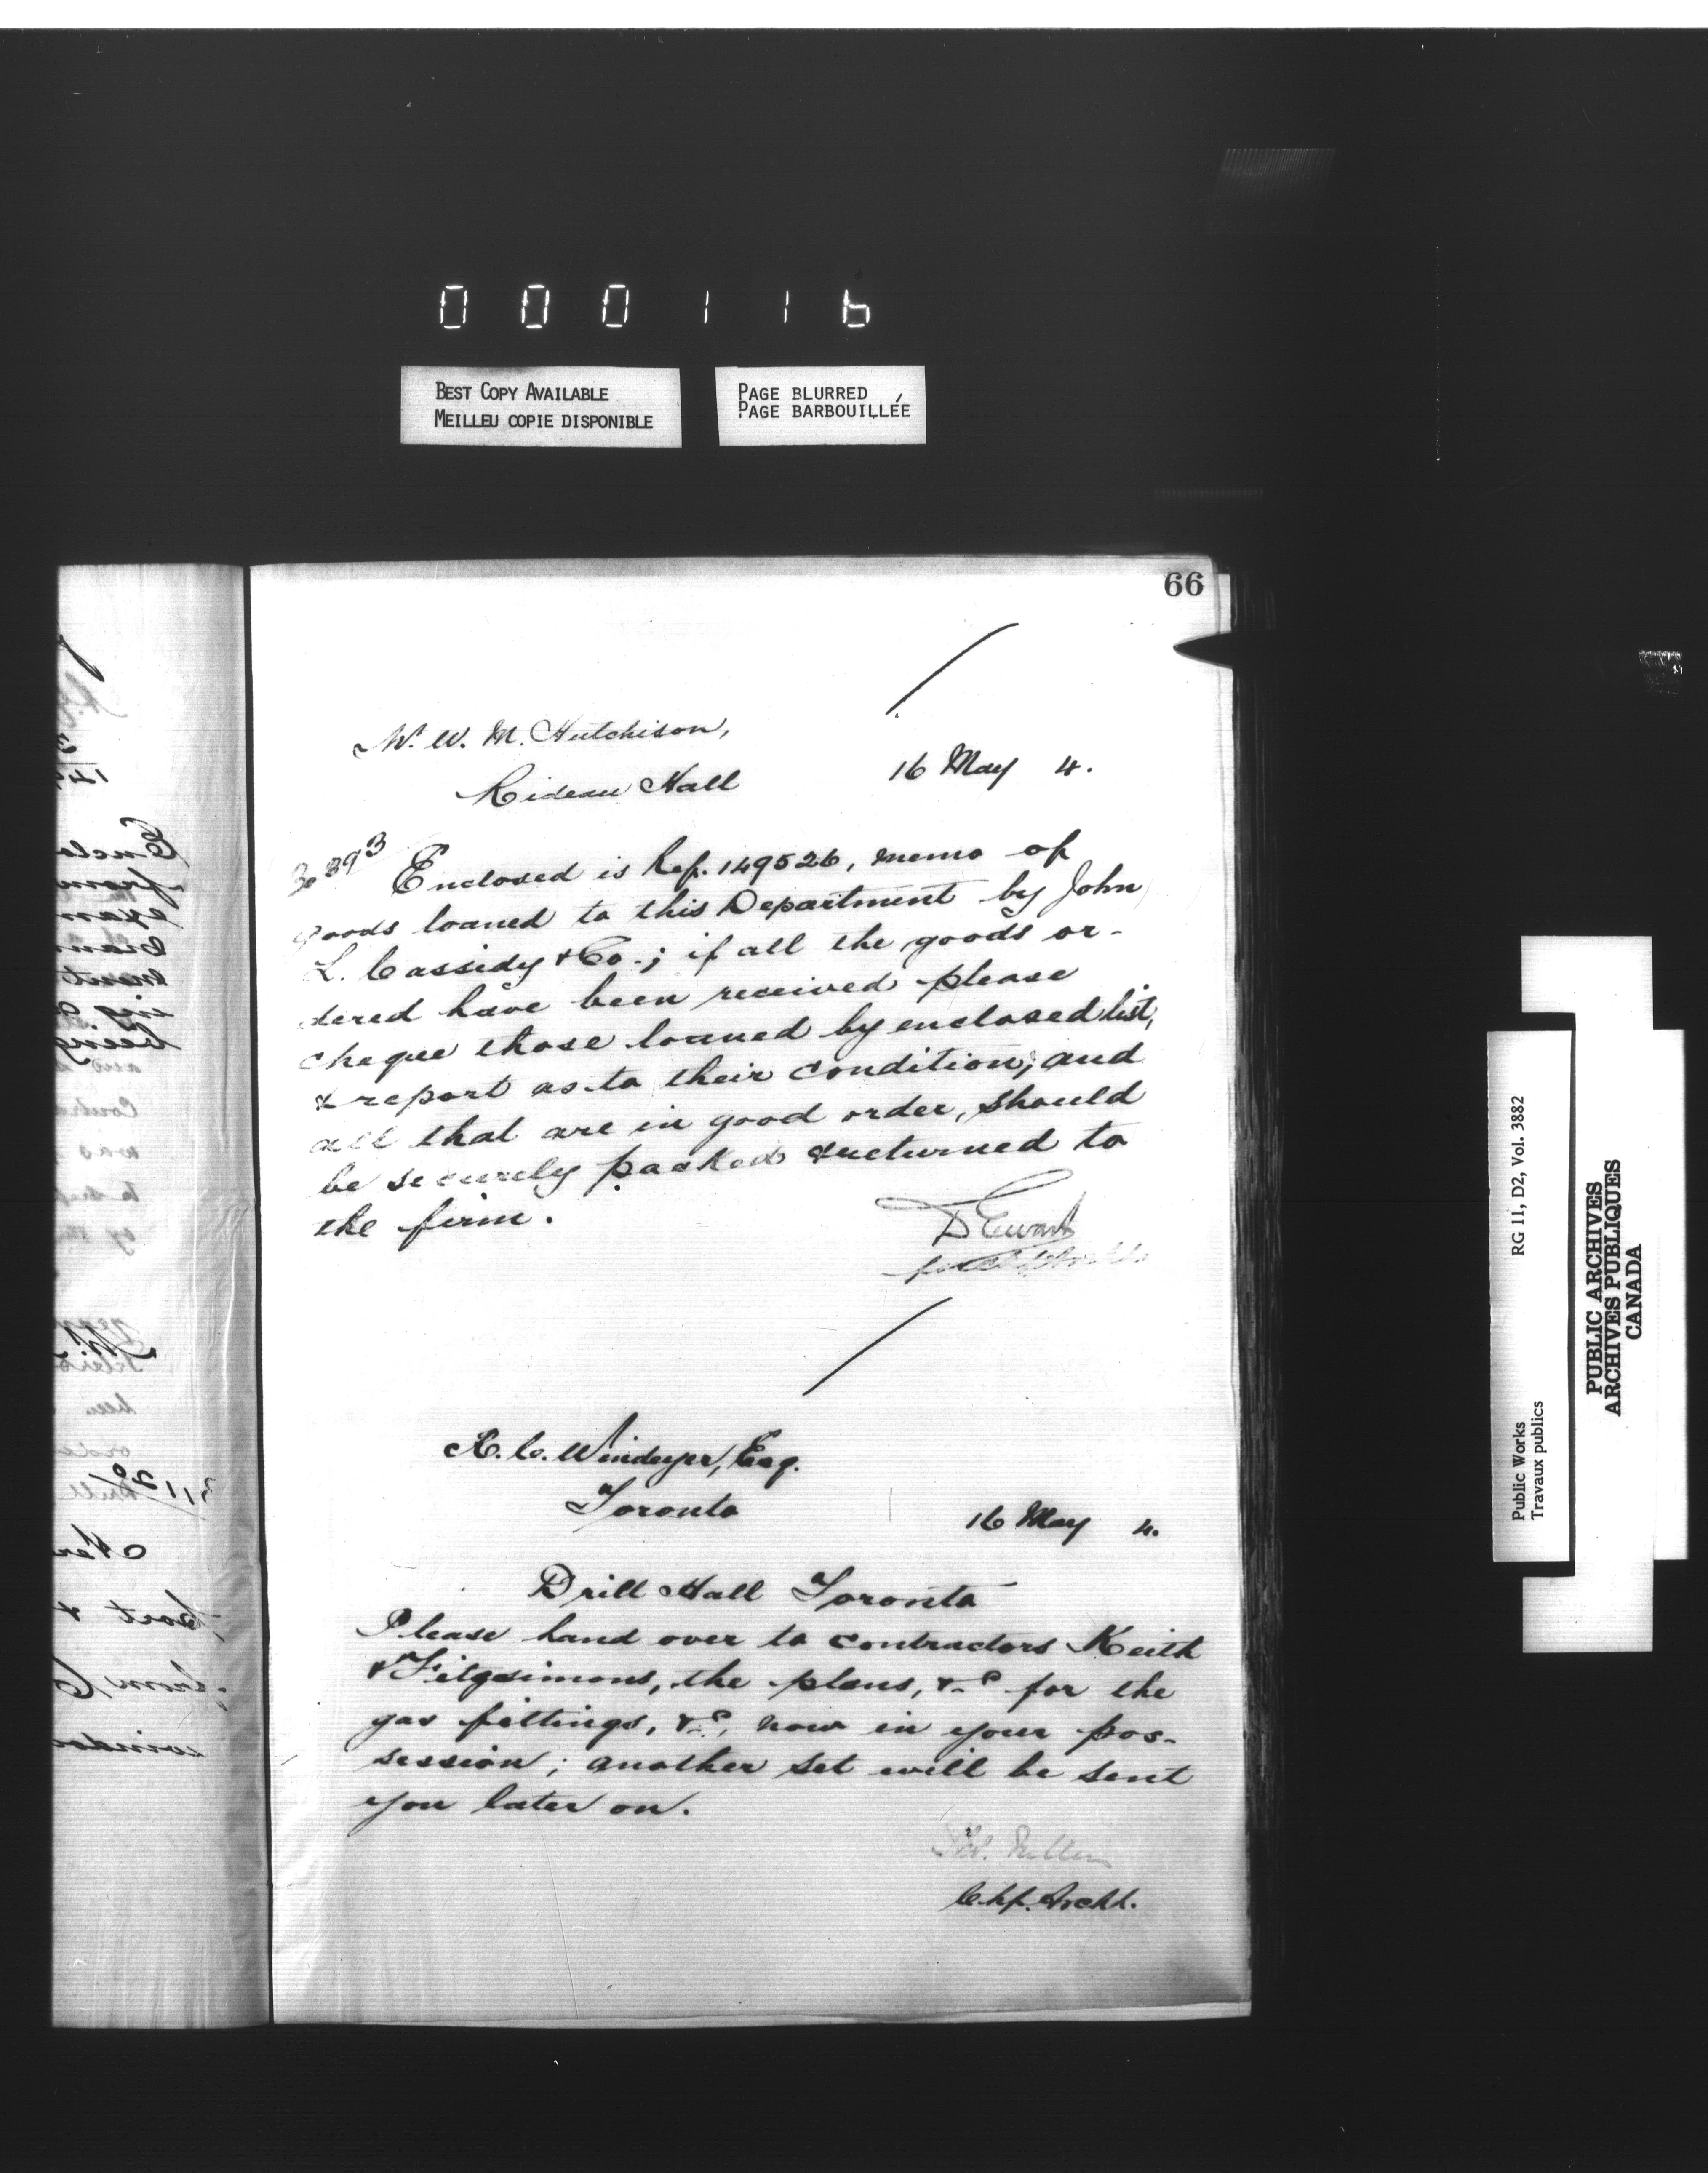 000116
BEST COPY AVAILABLE
MEILLEU COPIE DISPONIBLE
PAGE BLURRED
PAGE BARBOUILLÉE
66
Mr. W. M. Hutchison,
Rideau Hall
16 May 4.
Enclosed is Ref. 149526, memo of
goods loaned to this Department by John
L. Cassidy & Co.; if all the goods or-
dered have been received please
cheque those loaned by enclosed list,
& report as to their condition; and
all that are in good order, should
be securely packed & returned to
the firm.
D Ewart
R. C. Windeyer, Esq.
Toronto
16 May 4.
Drill Hall Toronto
Please hand over to contractors Keith
& Fitzsimons, the plans, &c for the
gas fittings, &c, now in your pos-
session; another set will be sent
you later on.
Thos. Fuller
Chf. Archt.
Public Works
Travaux publics
RG 11, D2, Vol. 3882
PUBLIC ARCHIVES
ARCHIVES PUBLIQUES
CANADA